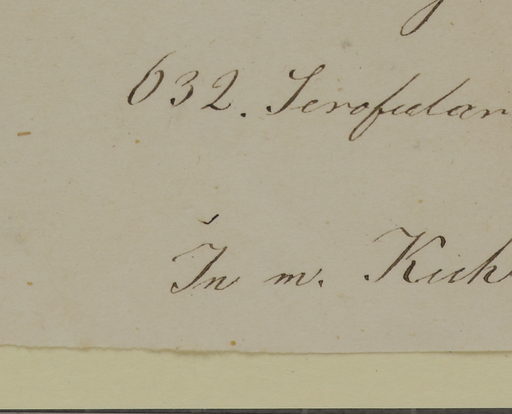 632. Scrofular
In m. Kuh